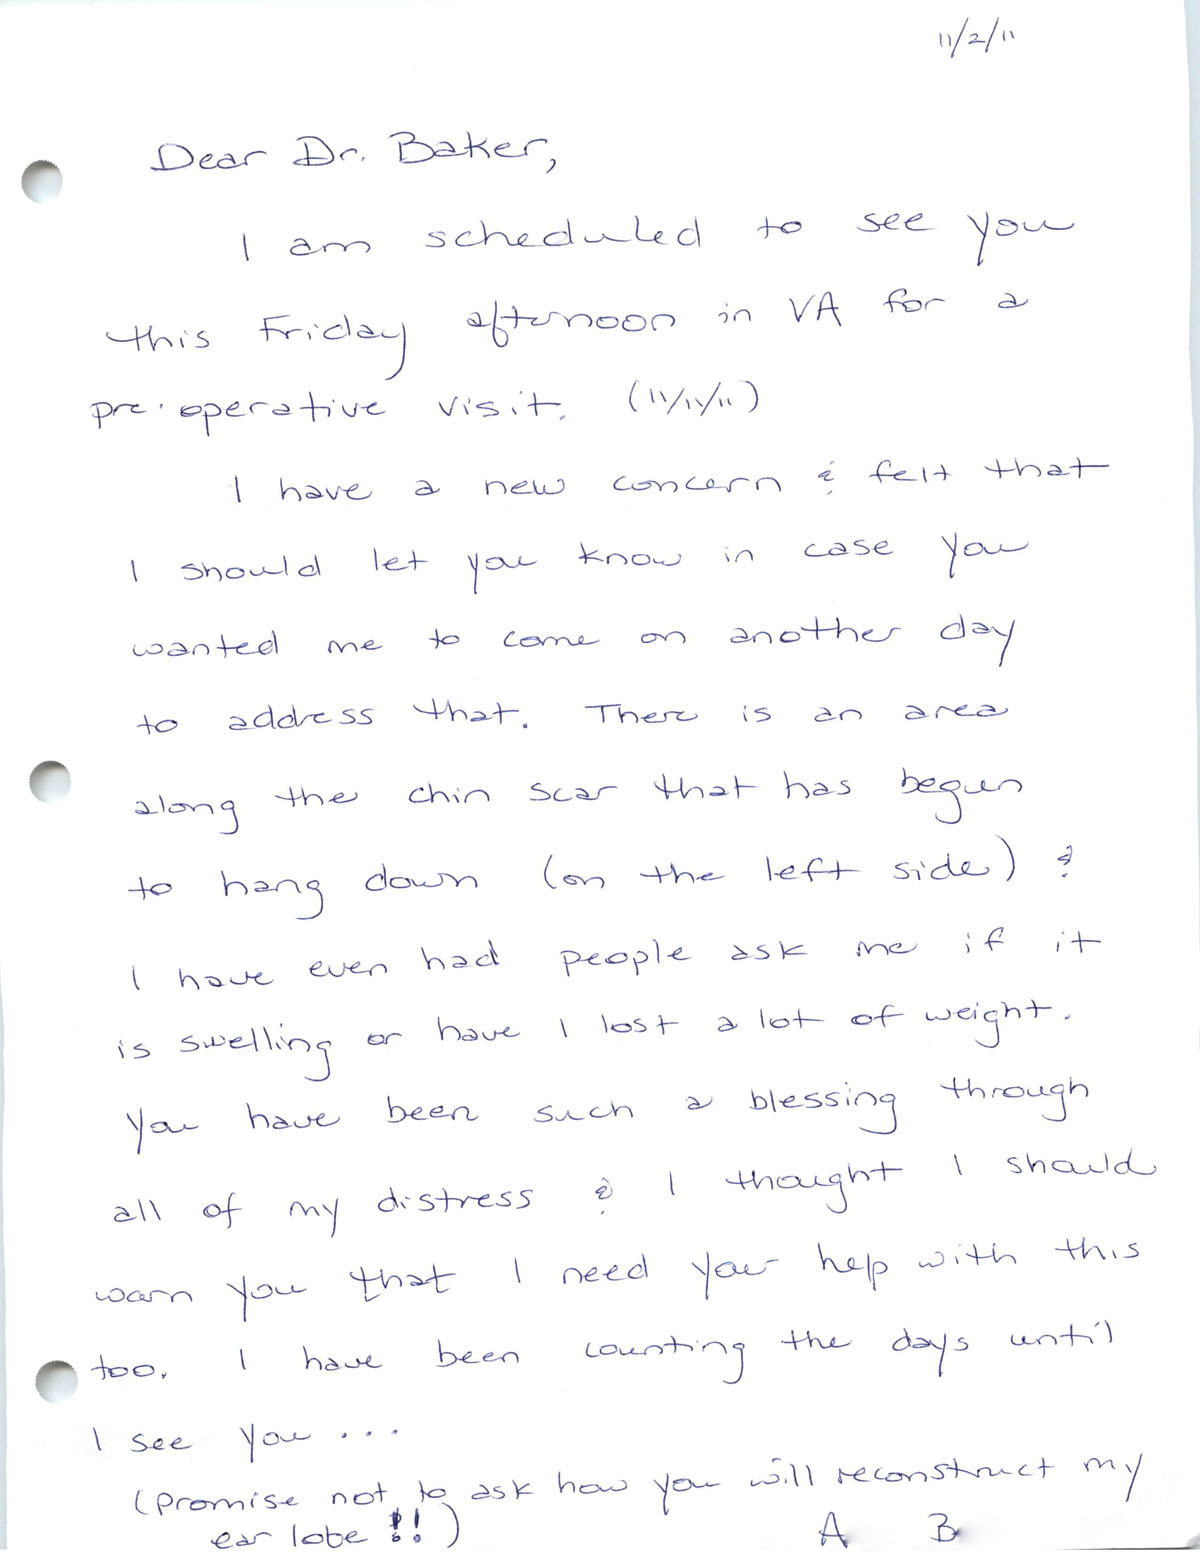 11/2/11
Dear Dr. Baker,
I am scheduled to see you
this Friday afternoon in VA for a
pre-operative visit. (11/11/11)
I have a new concern & felt that
I should let you know in case you
wanted me to come on another day
to address that. There is an area
along the chin scar that has begun
to hang down (on the left side) &
I have even had people ask me if it
is swelling or have I lost a lot of weight.
You have been such a blessing through
all of my distress & I thought I should
warn you that I need your help with this
too. I have been counting the days until
I see you ...
(Promise not to ask how you will reconstruct my
ear lobe !!)
A B